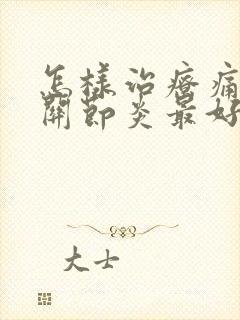 怎樣治療痛
關節炎最好
大士